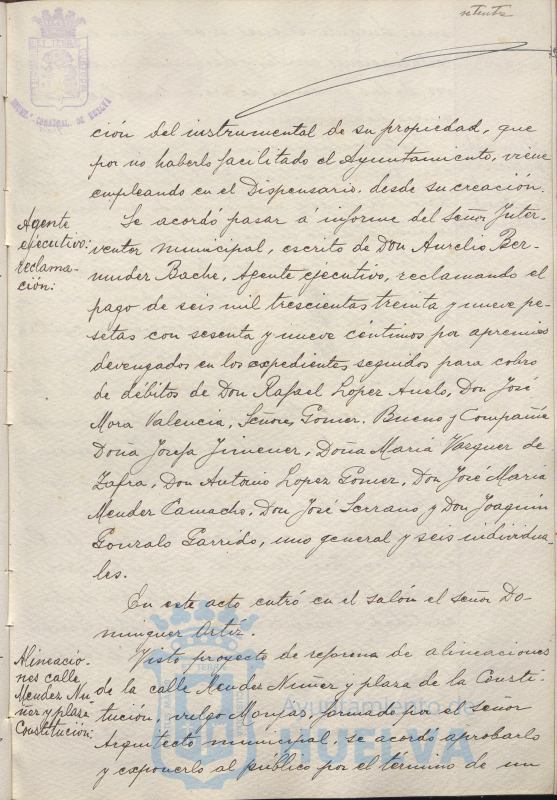 setenta
ción del instrumental de su propiedad, que
por no haberlo facilitado el Ayuntamiento, viene
empleando en el Dispensario, desde su creación.
Agente
ejecutivo:
reclama-
ción:
Se acordó pasar á informe del señor Inter-
ventor municipal, escrito de Don Aurelio Ber-
mudez Bache, Agente ejecutivo, reclamando el
pago de seis mil trescientas treinta y nueve pe-
setas con sesenta y nueve céntimos por apremios
devengados en los expedientes seguidos para cobro
de débitos de Don Rafael López Anelo, Don José
Mora Valencia, Señores Gomez, Bueno y Compañía
Doña Josefa Jimenez, Doña Maria Vazquez de
Zafra, Don Antonio Lopez Gomez, Don José Maria
Mendez Camacho, Don José Serrano y Don Joaquin
Gonzalo Garrido, uno general y seis individua-
les.
En este acto entró en el salón el señor Do-
minguez Ortiz.
Alineacio-
nes calle
Mendez Nu-
ñez y plaza
Constitución:
Visto proyecto de reforma de alineaciones
de la calle Mendez Nuñez y plaza de la Consti-
tución, vulgo Monjas, formado por el señor
Arquitecto municipal, se acordó aprobarlo
y exponerlo al público por el término de un
Ayuntamiento de
HUELVA